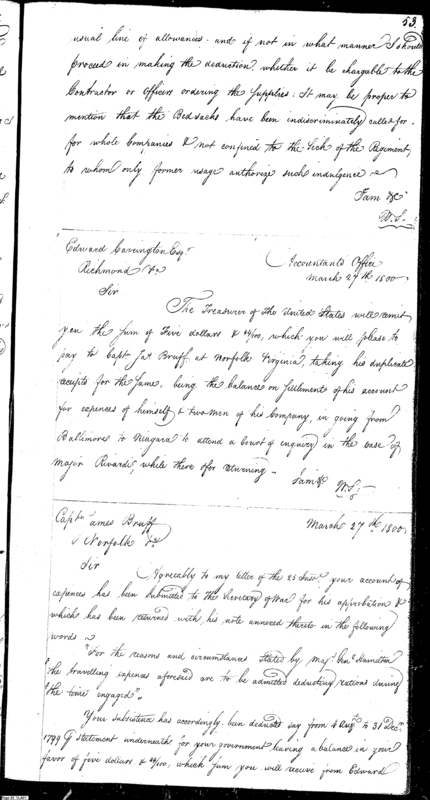 53
usual line of allowances. and if not in what manner I should
proceed in making the deduction, whether it be chargable to the
Contractor or Officers ordering the Supplies: It may be proper to
mention that the Bedsacks have been indiscriminately called for.
for whole Companies & not confined to the Sick of the Regiment,
to whom only former usage authorize such indulgence
I am &c
W. S.
Edward Carrington Esqr
Richmond Va
Accountants Office
March 27th 1800
Sir
The Treasurer of the United States will remit
you the Sum of Five dollars & 44/100, which you will please to
pay to Capt Jas Bruff, at Norfolk Virginia, taking his duplicate
receipts for the Same, being the balance on Settlement of his account
for expences of himself & two men of his Company, in going from
Baltimore to Niagara to attend a Court of enquiry in the case of
Major Rivardi, while there & for returning -
I am &c
W. S.
Captn James Bruff
Norfolk Va
March 27th 1800
Sir
Agreeably to my letter of the 25 Inst, your account of
expences has been submitted to the Secretary of War for his approbation &
which has been returned with his note annexed thereto in the following
words
"For the reasons and circumstances stated by majr Genl Hamilton
"the travelling expences aforesaid are to be admitted deducting rations during
"the time engaged".
Your subsistence has accordingly been deducted say from 4 Augt to 31 Decr
1799 statement underneath for your government leaving a balance in your
favor of five dollars & 44/100, which Sum you will receive from Edward